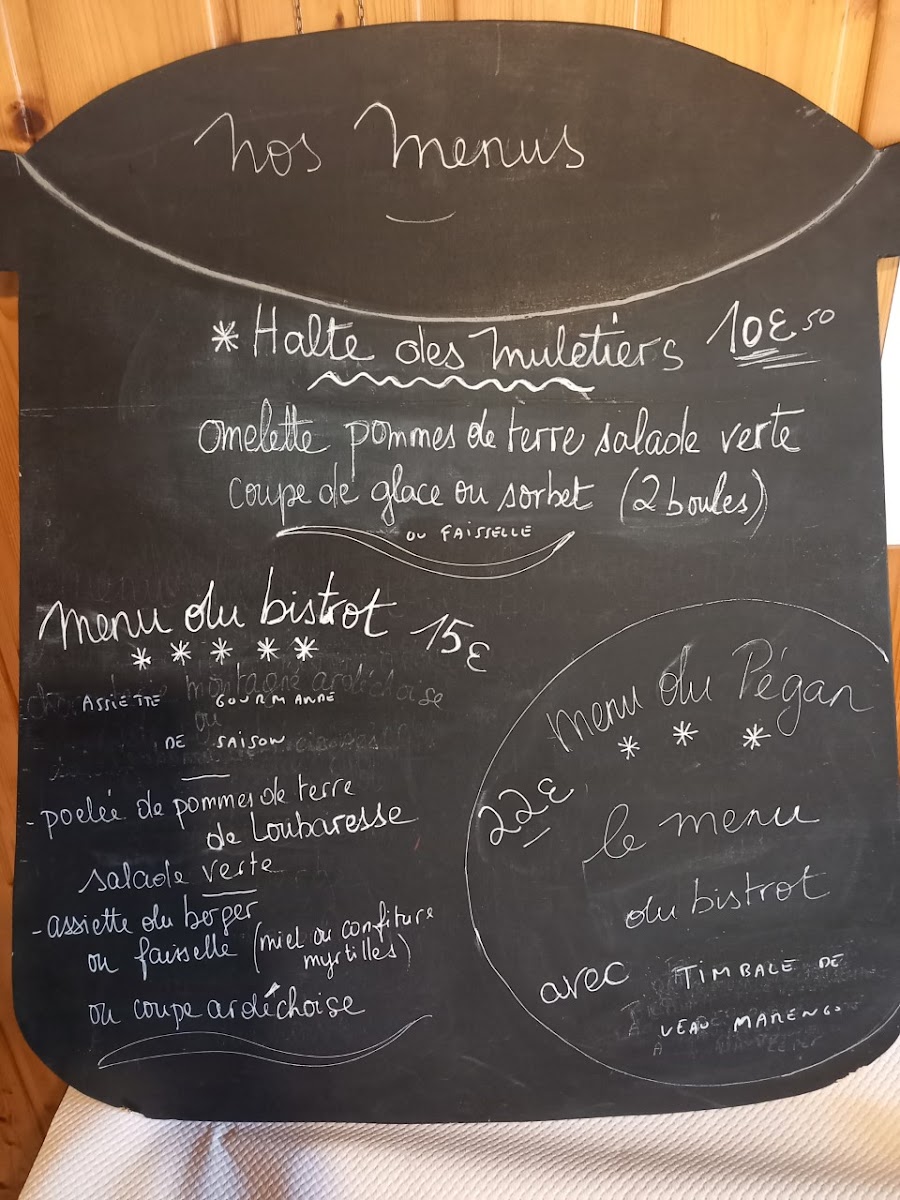 nos Menus
* Halte des Muletiers 10€50
omelette pommes de terre salade verte
coupe de glace ou sorbet (2 boules)
ou FAISSELLE
Menu du bistrot 15€
* * * * *
ASSIETTE GOURMANDE
DE SAISON
- poelée de pommes de terre
de Loubaresse
salade verte
- assiette du berger
ou faisselle (miel ou confiture
myrtilles)
ou coupe ardéchoise
Menu du Pégan
* * *
22€
le menu
du bistrot
avec TIMBALE DE
VEAU MARENGO